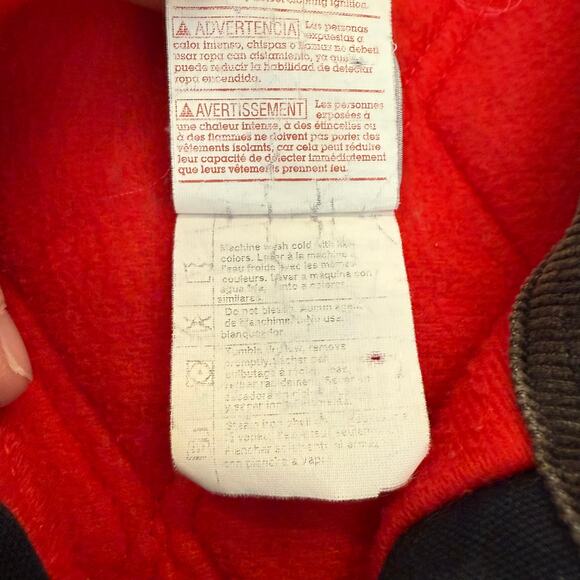 clothing ignition.
⚠ ADVERTENCIA Las personas
expuestas a
calor intenso, chispas o llamas no deben
usar ropa con aislamiento, ya que
puede reducir la habilidad de detectar
ropa encendida.
⚠ AVERTISSEMENT Les personnes
exposées à
une chaleur intense, à des étincelles ou
à des flammes ne doivent pas porter des
vêtements isolants, car cela peut réduire
leur capacité de détecter immédiatement
que leurs vêtements prennent feu.
Machine wash cold with like
colors. Laver à la machine à
l'eau froide avec les mêmes
couleurs. Lavar a máquina con
agua fría, junto a colores
similares.
Do not bleach. Aucun agent
de blanchiment. No use
blanqueador.
Tumble dry low, remove
promptly. Sécher par
culbutage à
retirer rapidement.
secadora
y sacar
Steam iron only.
à vapeur seulement.
Planchar
con plancha a vapor